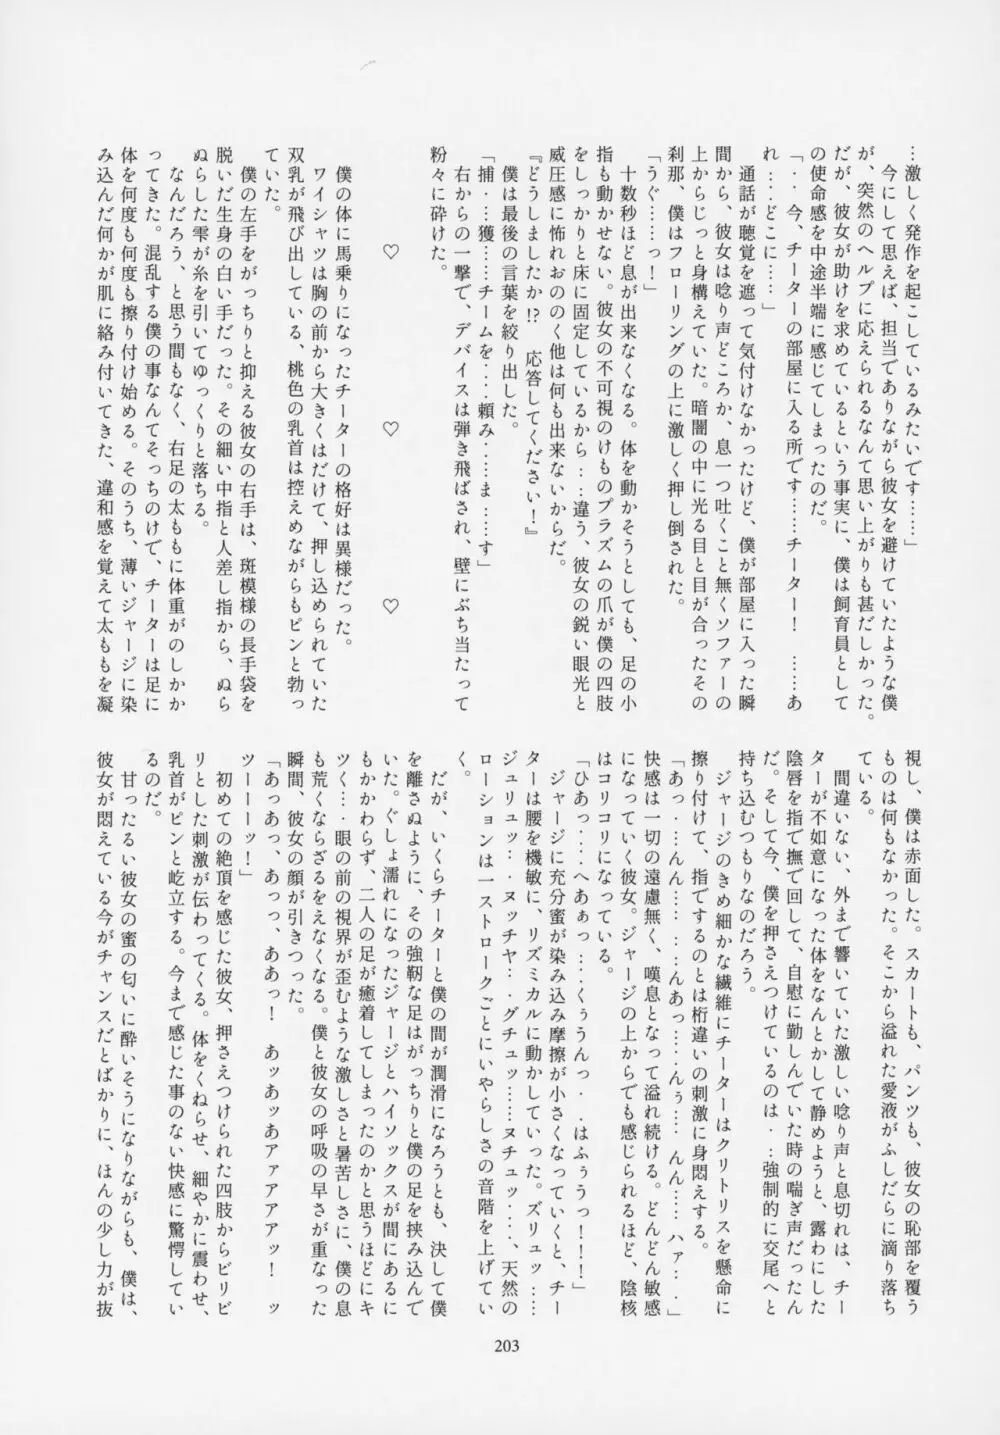 …激しく発作を起こしているみたいです……」
今にして思えば、担当でありながら彼女を避けていたような僕
が、突然のヘルプに応えられるなんて思い上がりも甚だしかった。
だが、彼女が助けを求めているという事実に、僕は飼育員として
の使命感を中途半端に感じてしまったのだ。
「‥、今、チーターの部屋に入る所です……チーター！　……あ
れ…‥どこに…‥」
通話が聴覚を遮って気付けなかったけど、僕が部屋に入った瞬
間から、彼女は唸り声どころか、息一つ吐くこと無くソファーの
上からじっと身構えていた。暗闇の中に光る目と目が合ったその
刹那、僕はフローリングの上に激しく押し倒された。
「うぐ……っ！」
十数秒ほど息が出来なくなる。体を動かそうとしても、足の小
指も動かせない。彼女の不可視のけものプラズムの爪が僕の四肢
をしっかりと床に固定しているから…‥違う、彼女の鋭い眼光と
威圧感に怖れおののく他は何も出来ないからだ。
『どうしましたか!?　応答してください！』
僕は最後の言葉を絞り出した。
「捕‥…獲……チームを‥‥頼み‥…ま……す」
右からの一撃で、デバイスは弾き飛ばされ、壁にぶち当たって
粉々に砕けた。
♡　♡　♡
僕の体に馬乗りになったチーターの格好は異様だった。
ワイシャツは胸の前から大きくはだけて、押し込められていた
双乳が飛び出している、桃色の乳首は控えめながらもピンと勃っ
ていた。
僕の左手をがっちりと抑える彼女の右手は、斑模様の長手袋を
脱いだ生身の白い手だった。その細い中指と人差し指から、ぬら
ぬらした雫が糸を引いてゆっくりと落ちる。
なんだろう、と思う間もなく、右足の太ももに体重がのしかか
ってきた。混乱する僕の事なんてそっちのけで、チーターは足に
体を何度も何度も擦り付け始める。そのうち、薄いジャージに染
み込んだ何かが肌に絡み付いてきた、違和感を覚えて太ももを凝
視し、僕は赤面した。スカートも、パンツも、彼女の恥部を覆う
ものは何もなかった。そこから溢れた愛液がふしだらに滴り落ち
ている。
間違いない、外まで響いていた激しい唸り声と息切れは、チー
ターが不如意になった体をなんとかして静めようと、露わにした
陰唇を指で撫で回して、自慰に勤しんでいた時の喘ぎ声だったん
だ。そして今、僕を押さえつけているのは‥…強制的に交尾へと
持ち込むつもりなのだろう。
ジャージのきめ細かな繊維にチーターはクリトリスを懸命に
擦り付けて、指でするのとは桁違いの刺激に身悶えする。
「あっ‥…んん…‥…んあっ…‥んぅ……んん…‥ハァ…‥」
快感は一切の遠慮無く、嘆息となって溢れ続ける。どんどん敏感
になっていく彼女。ジャージの上からでも感じられるほど、陰核
はコリコリになっている。
「ひあっ‥‥‥へあぁっ‥…くぅうんっ‥‥はふぅうっ！！！」
ジャージに充分蜜が染み込み摩擦が小さくなっていくと、チー
ターは腰を機敏に、リズミカルに動かしていった。ズリュッ……
ジュリュッ…‥ヌッチャ‥‥グチュッ……ヌチュッ‥‥、天然の
ローションは一ストロークごとにいやらしさの音階を上げてい
く。
だが、いくらチーターと僕の間が潤滑になろうとも、決して僕
を離さぬように、その強靭な足はがっちりと僕の足を挟み込んで
いた。ぐしょ濡れになったジャージとハイソックスが間にあるに
もかかわらず、二人の足が癒着してしまったのかと思うほどにキ
ツく…‥眼の前の視界が歪むような激しさと暑苦しさに、僕の息
も荒くならざるをえなくなる。僕と彼女の呼吸の早さが重なった
瞬間、彼女の顔が引きつった。
「あっあっっ、あっっ、ああっ！　あッあッあアァアアアッ！　ッ
ツーーーッ！」
初めての絶頂を感じた彼女、押さえつけられた四肢からビリビ
リとした刺激が伝わってくる。体をくねらせ、細やかに震わせ、
乳首がピンと屹立する。今まで感じた事のない快感に驚愕してい
るのだ。
甘ったるい彼女の蜜の匂いに酔いそうになりながらも、僕は、
彼女が悶えている今がチャンスだとばかりに、ほんの少し力が抜
203